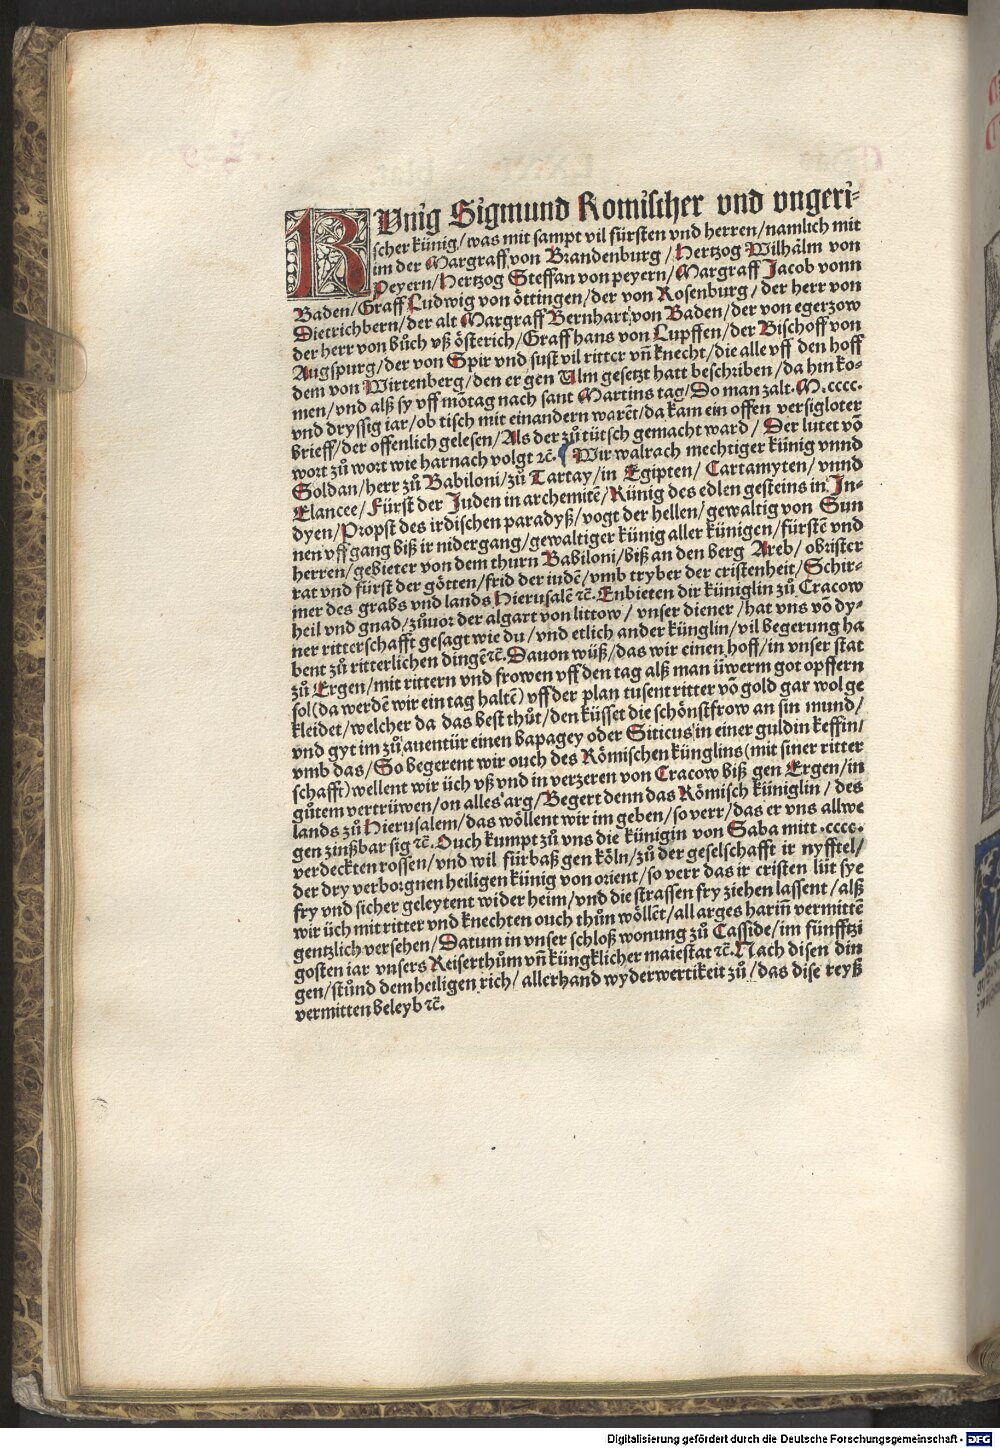 KVnig Sigmund Romischer vnd vngeri-
scher künig/was mit sampt vil fürsten vnd herren/namlich mit
im der Margraff von Brandenburg/Hertzog Wilhälm von
Peyern/Hertzog Steffan von peyern/Margraff Jacob vonn
Baden/Graff Ludwig von öttingen/der von Rosenburg/der herr von
Dietrichbern/der alt Margraff Bernhart von Baden/der von egerzow
der herr von bůch vß österich/Graff hans von Lupffen/der Bischoff von
Augspurg/der von Spir vnd sust vil ritter vn̄ knecht/die alle vff den hoff
dem von Wirtenberg/den er gen Vlm gesetzt hatt beschriben/da hin ko-
men/vnd alß sy vff mōtag nach sant Martins tag/Do man zalt.M.cccc.
vnd dryssig iar/ob tisch mit einandern warēt/da kam ein offen versigloter
brieff/der offenlich gelesen/Als der zů tütsch gemacht ward/Der lutet vō
wort zů wort wie harnach volgt ⁊c̄. Wir walrach mechtiger künig vnnd
Soldan/herr zů Babiloni/zů Tartay/in Egipten/Cartamyten/vnnd
Elancee/Fürst der Juden in archemitē/Künig des edlen gesteins in In-
dyen/Propst des irdischen paradyß/vogt der hellen/gewaltig von Sun
nen vffgang biß ir nidergang/gewaltiger künig aller künigen/fürstē vnd
herren/gebieter von dem thurn Babiloni/biß an den berg Areb/obrister
rat vnd fürst der götten/frid der iudē/vmb tryber der cristenheit/Schir-
mer des grabs vnd lands Hierusalē ⁊c̄. Enbieten dir küniglin zů Cracow
heil vnd gnad/zůuor der algart von littow/vnser diener/hat vns vō dy-
ner ritterschafft gesagt wie du/vnd etlich ander künglin/vil begerung ha
bent zů ritterlichen dingē ⁊c̄. Dauon wüß/das wir einen hoff/in vnser stat
zů Ergen/mit rittern vnd frowen vff den tag alß man üwerm got opffern
sol(da werdē wir ein tag haltē) vff der plan tusent ritter vō gold gar wol ge
kleidet/welcher da das best thůt/den küsset die schönst frow an sin mund/
vnd gyt im zů auentür einen bapagey oder Siticus in einer guldin keffin/
vmb das/So begerent wir ouch des Römischen künglins(mit siner ritter
schafft)wellent wir üch vß vnd in verzeren von Cracow biß gen Ergen/in
gůtem vertrüwen/on alles arg/Begert denn das Römisch küniglin/des
lands zů Hierusalem/das wöllent wir im geben/so verr/das er vns allwe
gen zinßbar sig ⁊c̄. Ouch kumpt zů vns die künigin von Saba mitt.cccc.
verdeckten rossen/vnd wil fürbaß gen köln/zů der geselschafft ir nyfftel/
der dry verborgnen heiligen künig von orient/so verr das ir cristen lüt sye
fry vnd sicher geleytent wider heim/vnd die strassen fry ziehen lassent/alß
wir üch mit ritter vnd knechten ouch thůn wöllēt/all arges harin̄ vermittē
gentzlich versehen/Datum in vnser schloß wonung zů Casside/im fünfftzi
gosten iar vnsers Keiserthům vn̄ küngklicher maiestat ⁊c̄. Nach disen din
gen/stůnd dem heiligen rich/allerhand wyderwertikeit zů/das dise reyß
vermitten beleyb ⁊c̄.
Digitalisierung gefördert durch die Deutsche Forschungsgemeinschaft - DFG